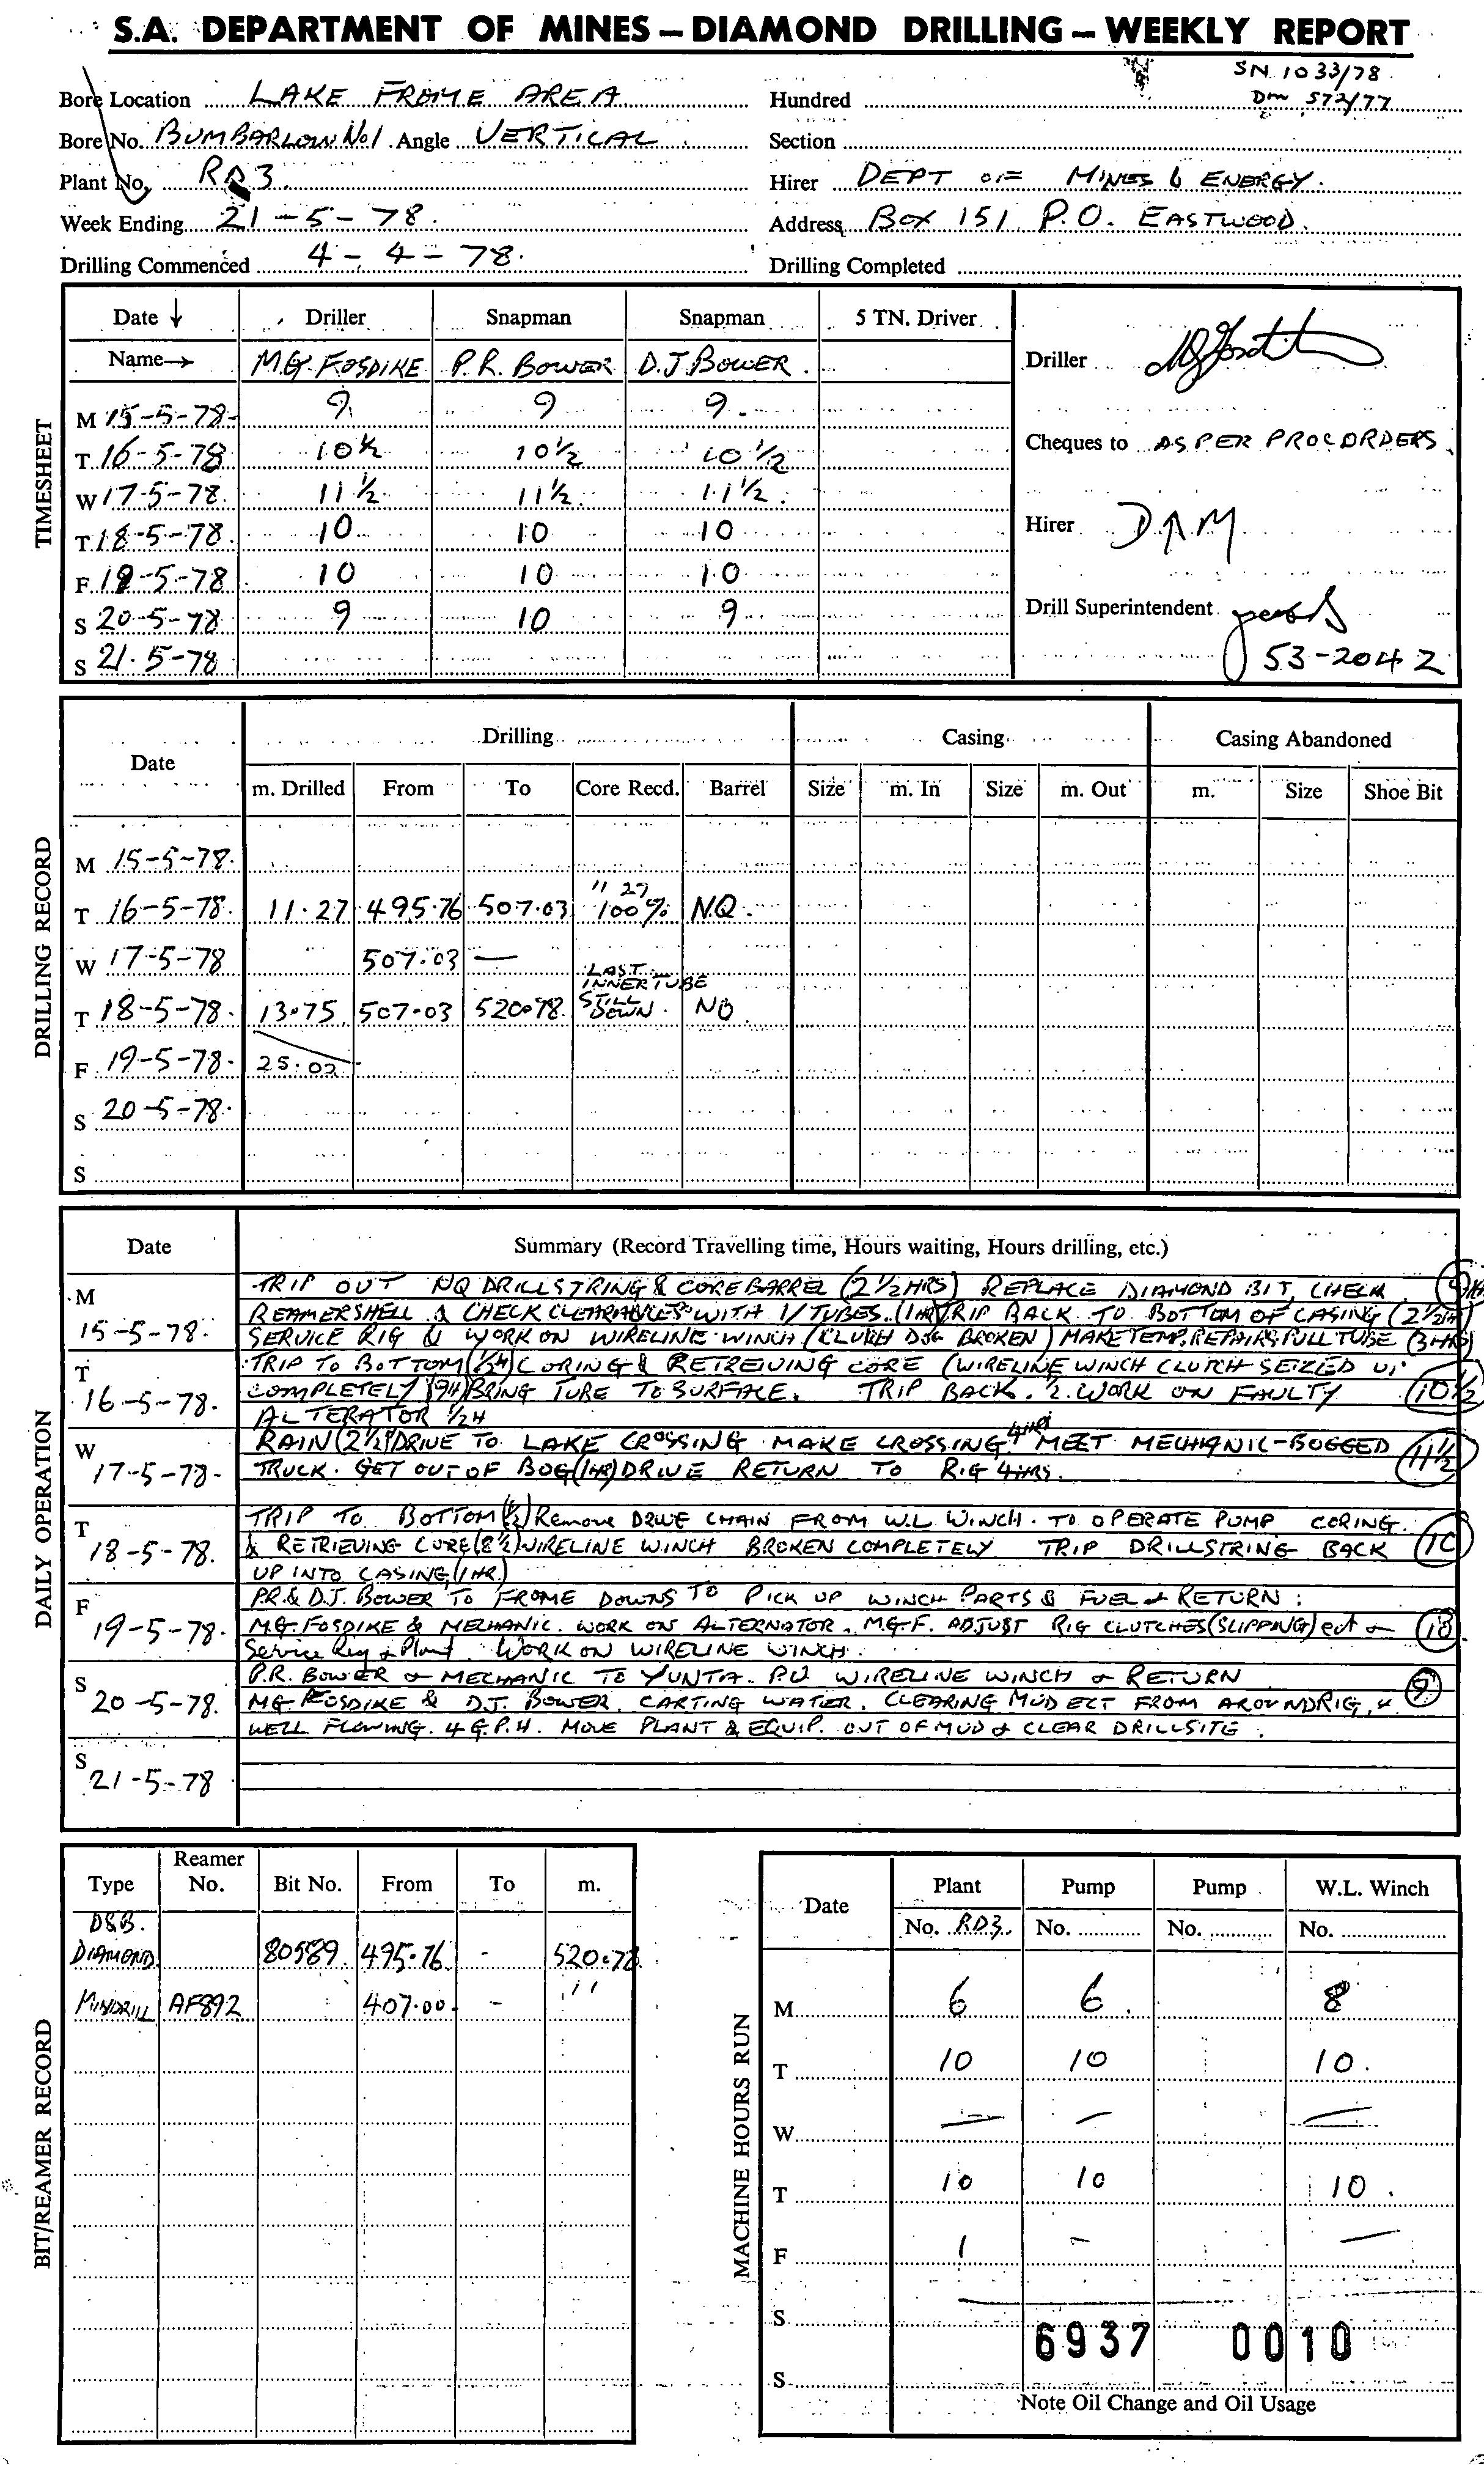 S.A. DEPARTMENT OF MINES – DIAMOND DRILLING – WEEKLY REPORT
SN 1033/78
Dm 572/77
Bore Location LAKE FROME AREA Hundred
Bore No. BUMBARLOW No1 Angle VERTICAL Section
Plant No. RD3 Hirer DEPT OF MINES & ENERGY.
Week Ending 21-5-78. Address BOX 151 P.O. EASTWOOD.
Drilling Commenced 4-4-78. Drilling Completed
TIMESHEET
Date ↓ Driller Snapman Snapman 5 TN. Driver
Name→ M.G. FOSDIKE P.R. BOWER D.J. BOWER.
M 15-5-78- 9 9 9.
T 16-5-78 10½ 10½ 10½
W 17-5-78. 11½ 11½. 11½.
T 18-5-78. 10 10 10
F 19-5-78 10 10 10
S 20-5-78 9 10 9
S 21.5-78
Driller
Cheques to AS PER PROC ORDERS.
Hirer D.A.M
Drill Superintendent
53-2042
DRILLING RECORD
Date Drilling Casing Casing Abandoned
m. Drilled From To Core Recd. Barrel Size m. In Size m. Out m. Size Shoe Bit
M 15-5-78.
T 16-5-78. 11.27 495.76 507.03 11 27 100% NQ.
W 17-5-78 507.03 —
T 18-5-78. 13.75 507.03 520.78 LAST INNERTUBE STILL DOWN. NQ
F 19-5-78. 25.02
S 20-5-78.
S
DAILY OPERATION
Date Summary (Record Travelling time, Hours waiting, Hours drilling, etc.)
M 15-5-78.
TRIP OUT NQ DRILLSTRING & COREBARREL (2½HRS) REPLACE DIAMOND BIT, CHECK
REAMERSHELL & CHECK CLEARANCES WITH I/TUBES. (1HR) TRIP BACK TO BOTTOM OF CASING (2½H)
SERVICE RIG & WORK ON WIRELINE WINCH (CLUTCH DOG BROKEN) MAKE TEMP. REPAIRS PULL TUBE (3HRS)
T 16-5-78.
TRIP TO BOTTOM (½H) CORING & RETREIVING CORE (WIRELINE WINCH CLUTCH SEIZED UP
COMPLETELY (9H) BRING TUBE TO SURFACE. TRIP BACK. ½. WORK ON FAULTY 10½
ALTERATOR ½H
W 17-5-78-
RAIN (2½) DRIVE TO LAKE CROSSING MAKE CROSSING 4HRS MEET MECHANIC-BOGGED 11½
TRUCK. GET OUT OF BOG (1HR) DRIVE RETURN TO RIG 4HRS.
T 18-5-78.
TRIP TO BOTTOM (½) Remove DRIVE CHAIN FROM W.L WINCH. TO OPERATE PUMP CORING.
& RETRIEVING CORE (8½) WIRELINE WINCH BROKEN COMPLETELY TRIP DRILLSTRING BACK 10
UP INTO CASING (1HR.)
F 19-5-78.
P.R. & D.J. BOWER TO FROME DOWNS TO PICK UP WINCH PARTS & FUEL & RETURN:
M.G. FOSDIKE & MECHANIC. WORK ON ALTERNATOR. M.G.F. ADJUST RIG CLUTCHES (SLIPPING) ect & 10
Service Rig & Plant. WORK ON WIRELINE WINCH.
S 20-5-78.
P.R. BOWER & MECHANIC TO YUNTA. P.U WIRELINE WINCH & RETURN
MG FOSDIKE & D.J. BOWER. CARTING WATER. CLEARING MUD ECT FROM AROUND RIG, & 9
WELL FLOWING. 4 G.P.H. MOVE PLANT & EQUIP. OUT OF MUD & CLEAR DRILLSITE.
S 21-5-78
BIT/REAMER RECORD
Type Reamer No. Bit No. From To m.
D&B.
DIAMOND 80589 495.76 - 520.78
MINDRILL AF892 407.00 - "
MACHINE HOURS RUN
Date Plant Pump Pump W.L. Winch
No. RD3. No. No. No.
M 6 6. 8
T 10 10 10.
W — — —
T 10 10 10.
F 1 - —
S
6937 0010
S
Note Oil Change and Oil Usage